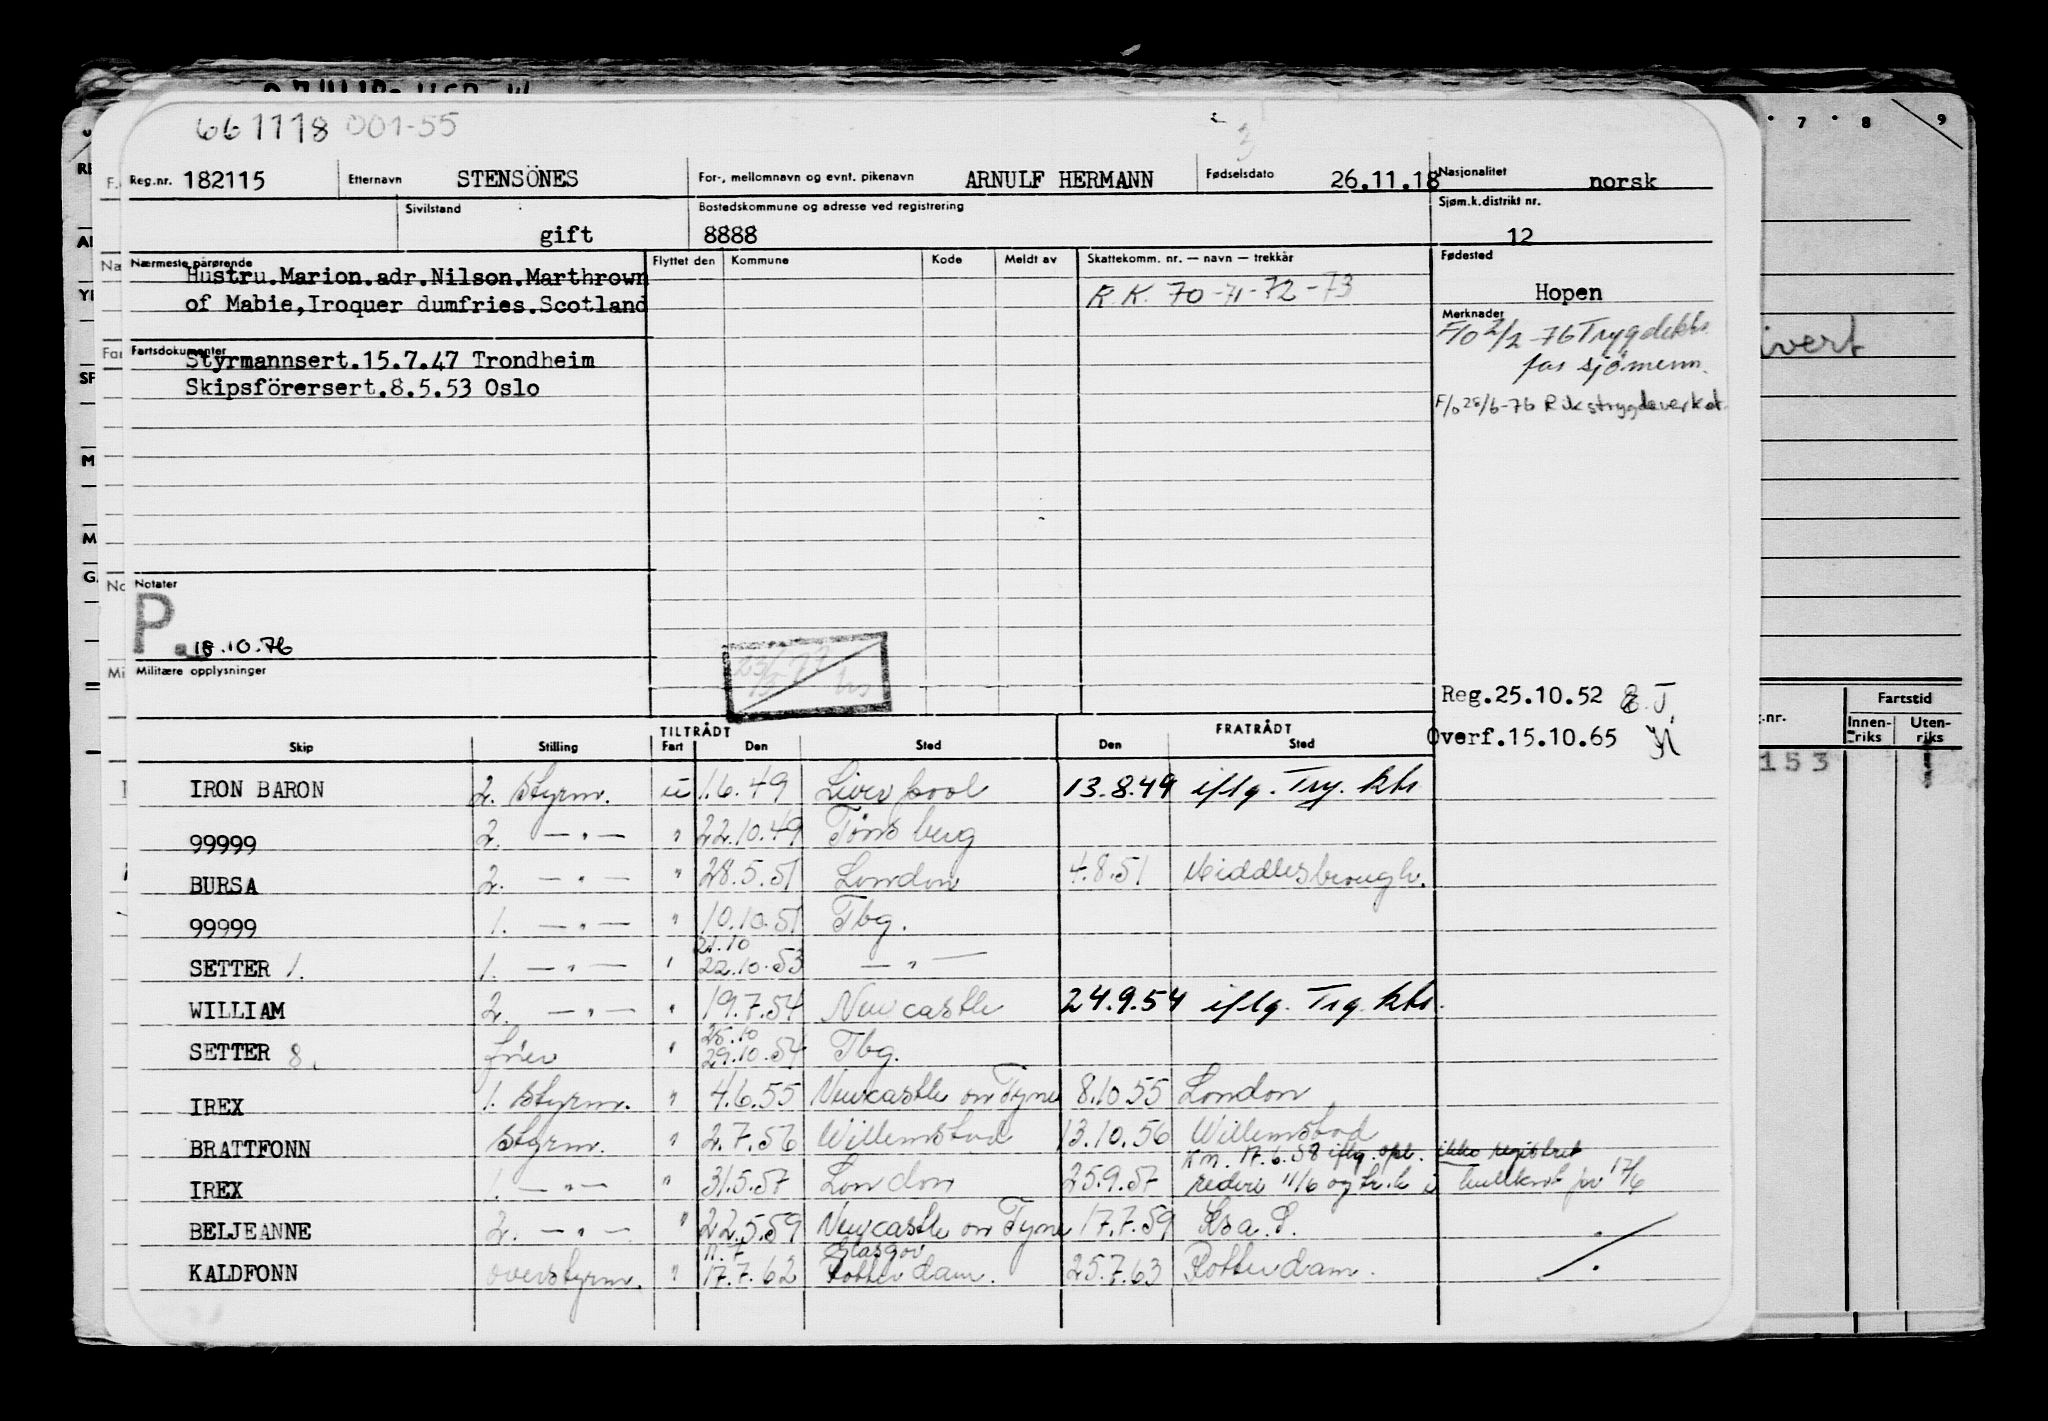 661118 001-55
3
Reg.nr. 182115 Etternavn STENSÖNES For-, mellomnavn og evnt. pikenavn ARNULF HERMANN Fødselsdato 26.11.18 Nasjonalitet norsk
Sivilstand gift Bostedskommune og adresse ved registrering 8888 Sjøm.k.distrikt nr. 12
Nærmeste pårørende Flyttet den Kommune Kode Meldt av Skattekomm. nr. — navn — trekkår Fødested
Hustru.Marion.adr.Nilson.Marthrown
of Mabie,Iroquer dumfries.Scotland
R.K. 70-71-72-73
Hopen
Merknader
F/o 2/2-76 Trygdekts
for sjømenn.
F/o 28/6-76 Rikstrygdeverket
Fartsdokumenter
Styrmannsert.15.7.47 Trondheim
Skipsförersert.8.5.53 Oslo
Notater
P.
18.10.76
Militære opplysninger
Reg.25.10.52
Overf.15.10.65
TILTRÅDT FRATRÅDT
Skip Stilling Fart Den Sted Den Sted
IRON BARON 2. styrm. u 1.6.49 Liverpool 13.8.49 iflg. Try. kts
99999 2. —"— " 22.10.49 Tønsberg
BURSA 2. —"— " 28.5.51 London 4.8.51 Middlesbrough.
99999 1. —"— " 10.10.51 Tbg.
21.10
SETTER 1. 1. —"— " 22.10.53 —"—
WILLIAM 2. —"— " 19.7.54 Newcastle 24.9.54 iflg. Trg. kts.
25.10
SETTER 8. fører " 29.10.54 Tbg.
IREX 1. styrm. " 4.6.55 Newcastle on Tyne 8.10.55 London
BRATTFONN Styrm. " 2.7.56 Willemstad 13.10.56 Willemstad
17.6.58 iflg. opl. ikke registrert
IREX 1. —"— " 31.5.57 London 25.9.57 rederi 11/6 og 17/6
BELJEANNE 2. —"— " 22.5.59 Newcastle on Tyne 17.7.59
11.7 Glasgow
KALDFONN overstyrm. " 17.7.62 Rotterdam. 25.7.63 Rotterdam.
7 8 9
Fartstid
Innen-riks Uten-riks
153